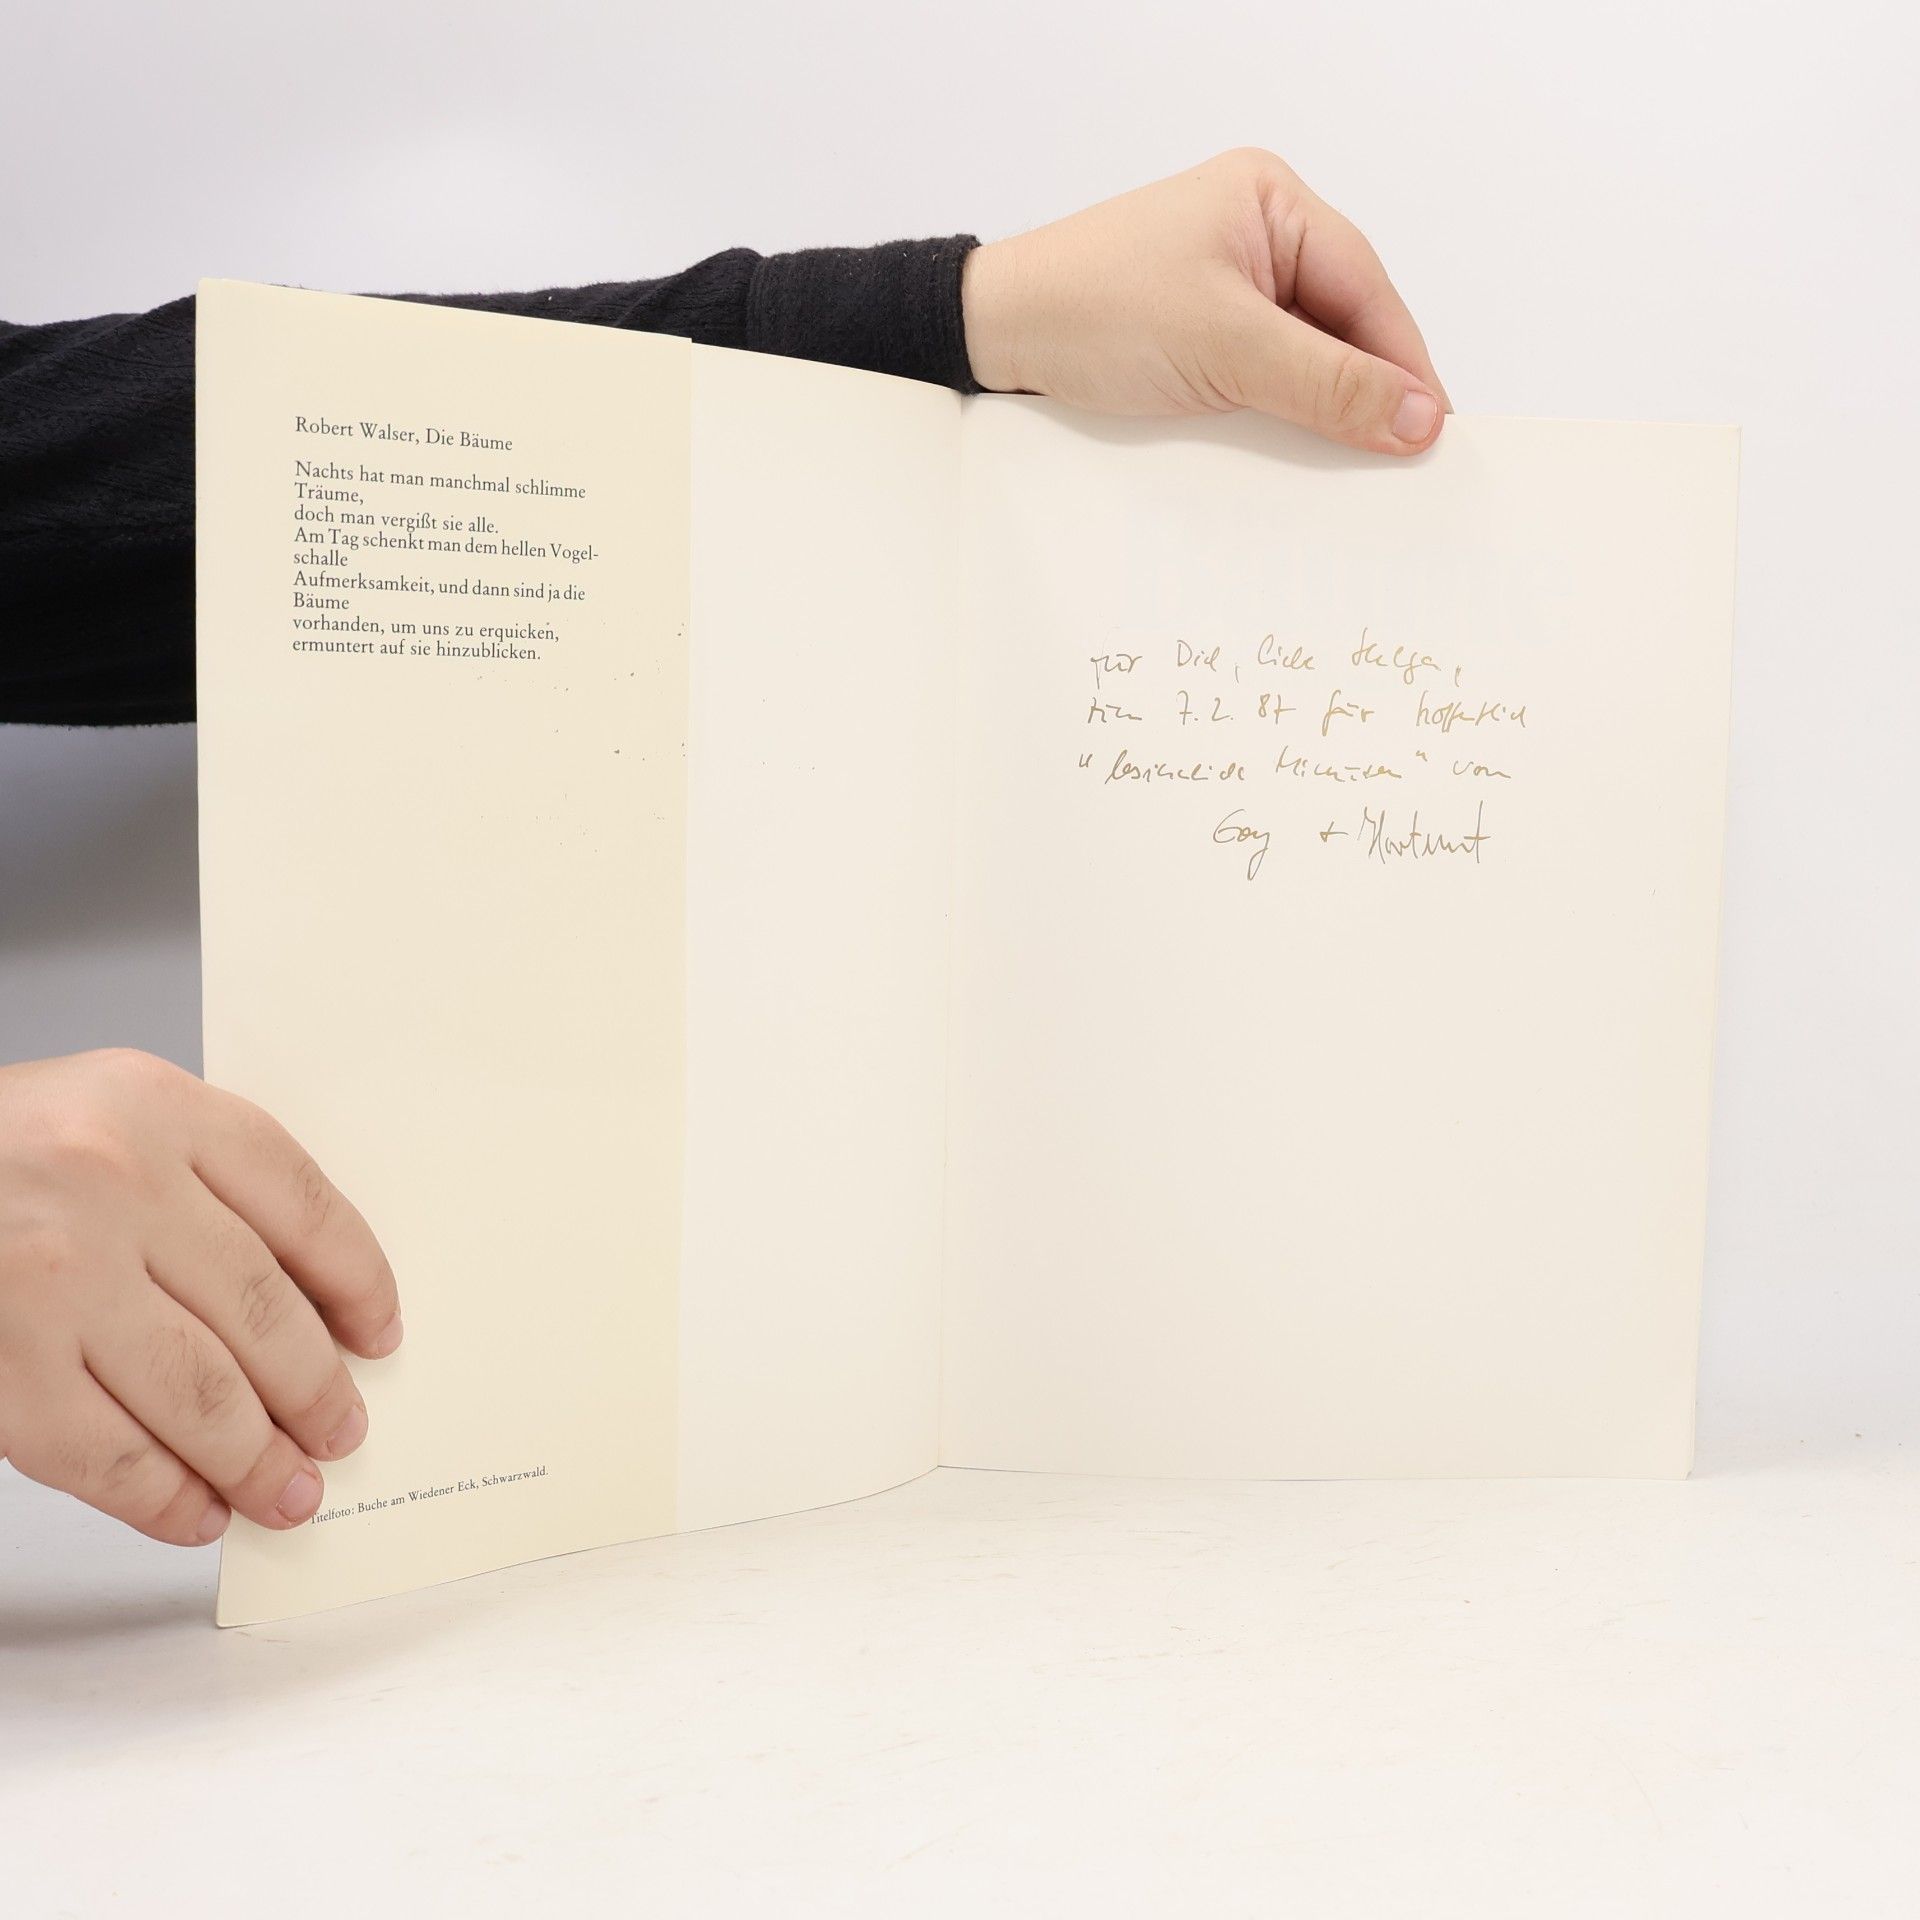 Robert Walser, Die Bäume
Nachts hat man manchmal schlimme
Träume,
doch man vergißt sie alle.
Am Tag schenkt man dem hellen Vogel-
schalle
Aufmerksamkeit, und dann sind ja die
Bäume
vorhanden, um uns zu erquicken,
ermuntert auf sie hinzublicken.
Titelfoto: Buche am Wiedener Eck, Schwarzwald.
für Dich, liebe Helga,
zum 7.2.87 für hoffentlich
"besinnliche Minuten" von
+ Hartmut